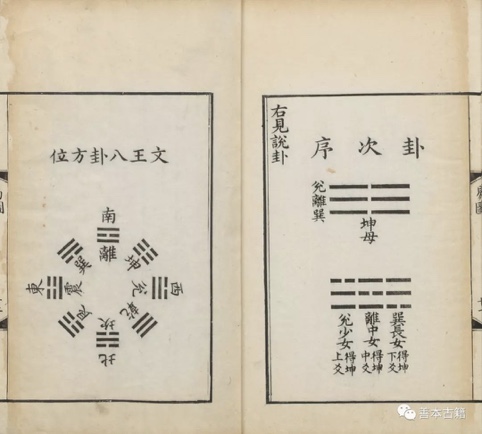 卦次序
右見說卦
兌離巽
坤母
巽長女得坤下爻
離中女得坤中爻
兌少女得坤上爻
文王八卦方位
南
離
坤
西
兌
乾
北
坎
艮
東
震
巽
善本古籍